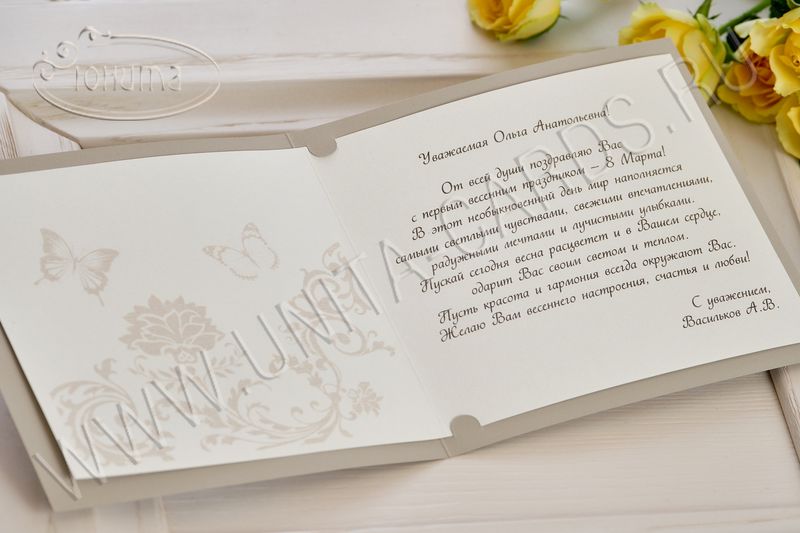 Юнита
Уважаемая Ольга Анатольевна!
От всей души поздравляю Вас
с первым весенним праздником – 8 Марта!
В этот необыкновенный день мир наполняется
самыми светлыми чувствами, свежими впечатлениями,
радужными мечтами и лучистыми улыбками.
Пускай сегодня весна расцветет и в Вашем сердце,
одарит Вас своим светом и теплом.
Пусть красота и гармония всегда окружают Вас.
Желаю Вам весеннего настроения, счастья и любви!
С уважением,
Васильков А.В.
WWW.UNITA-CARDS.RU